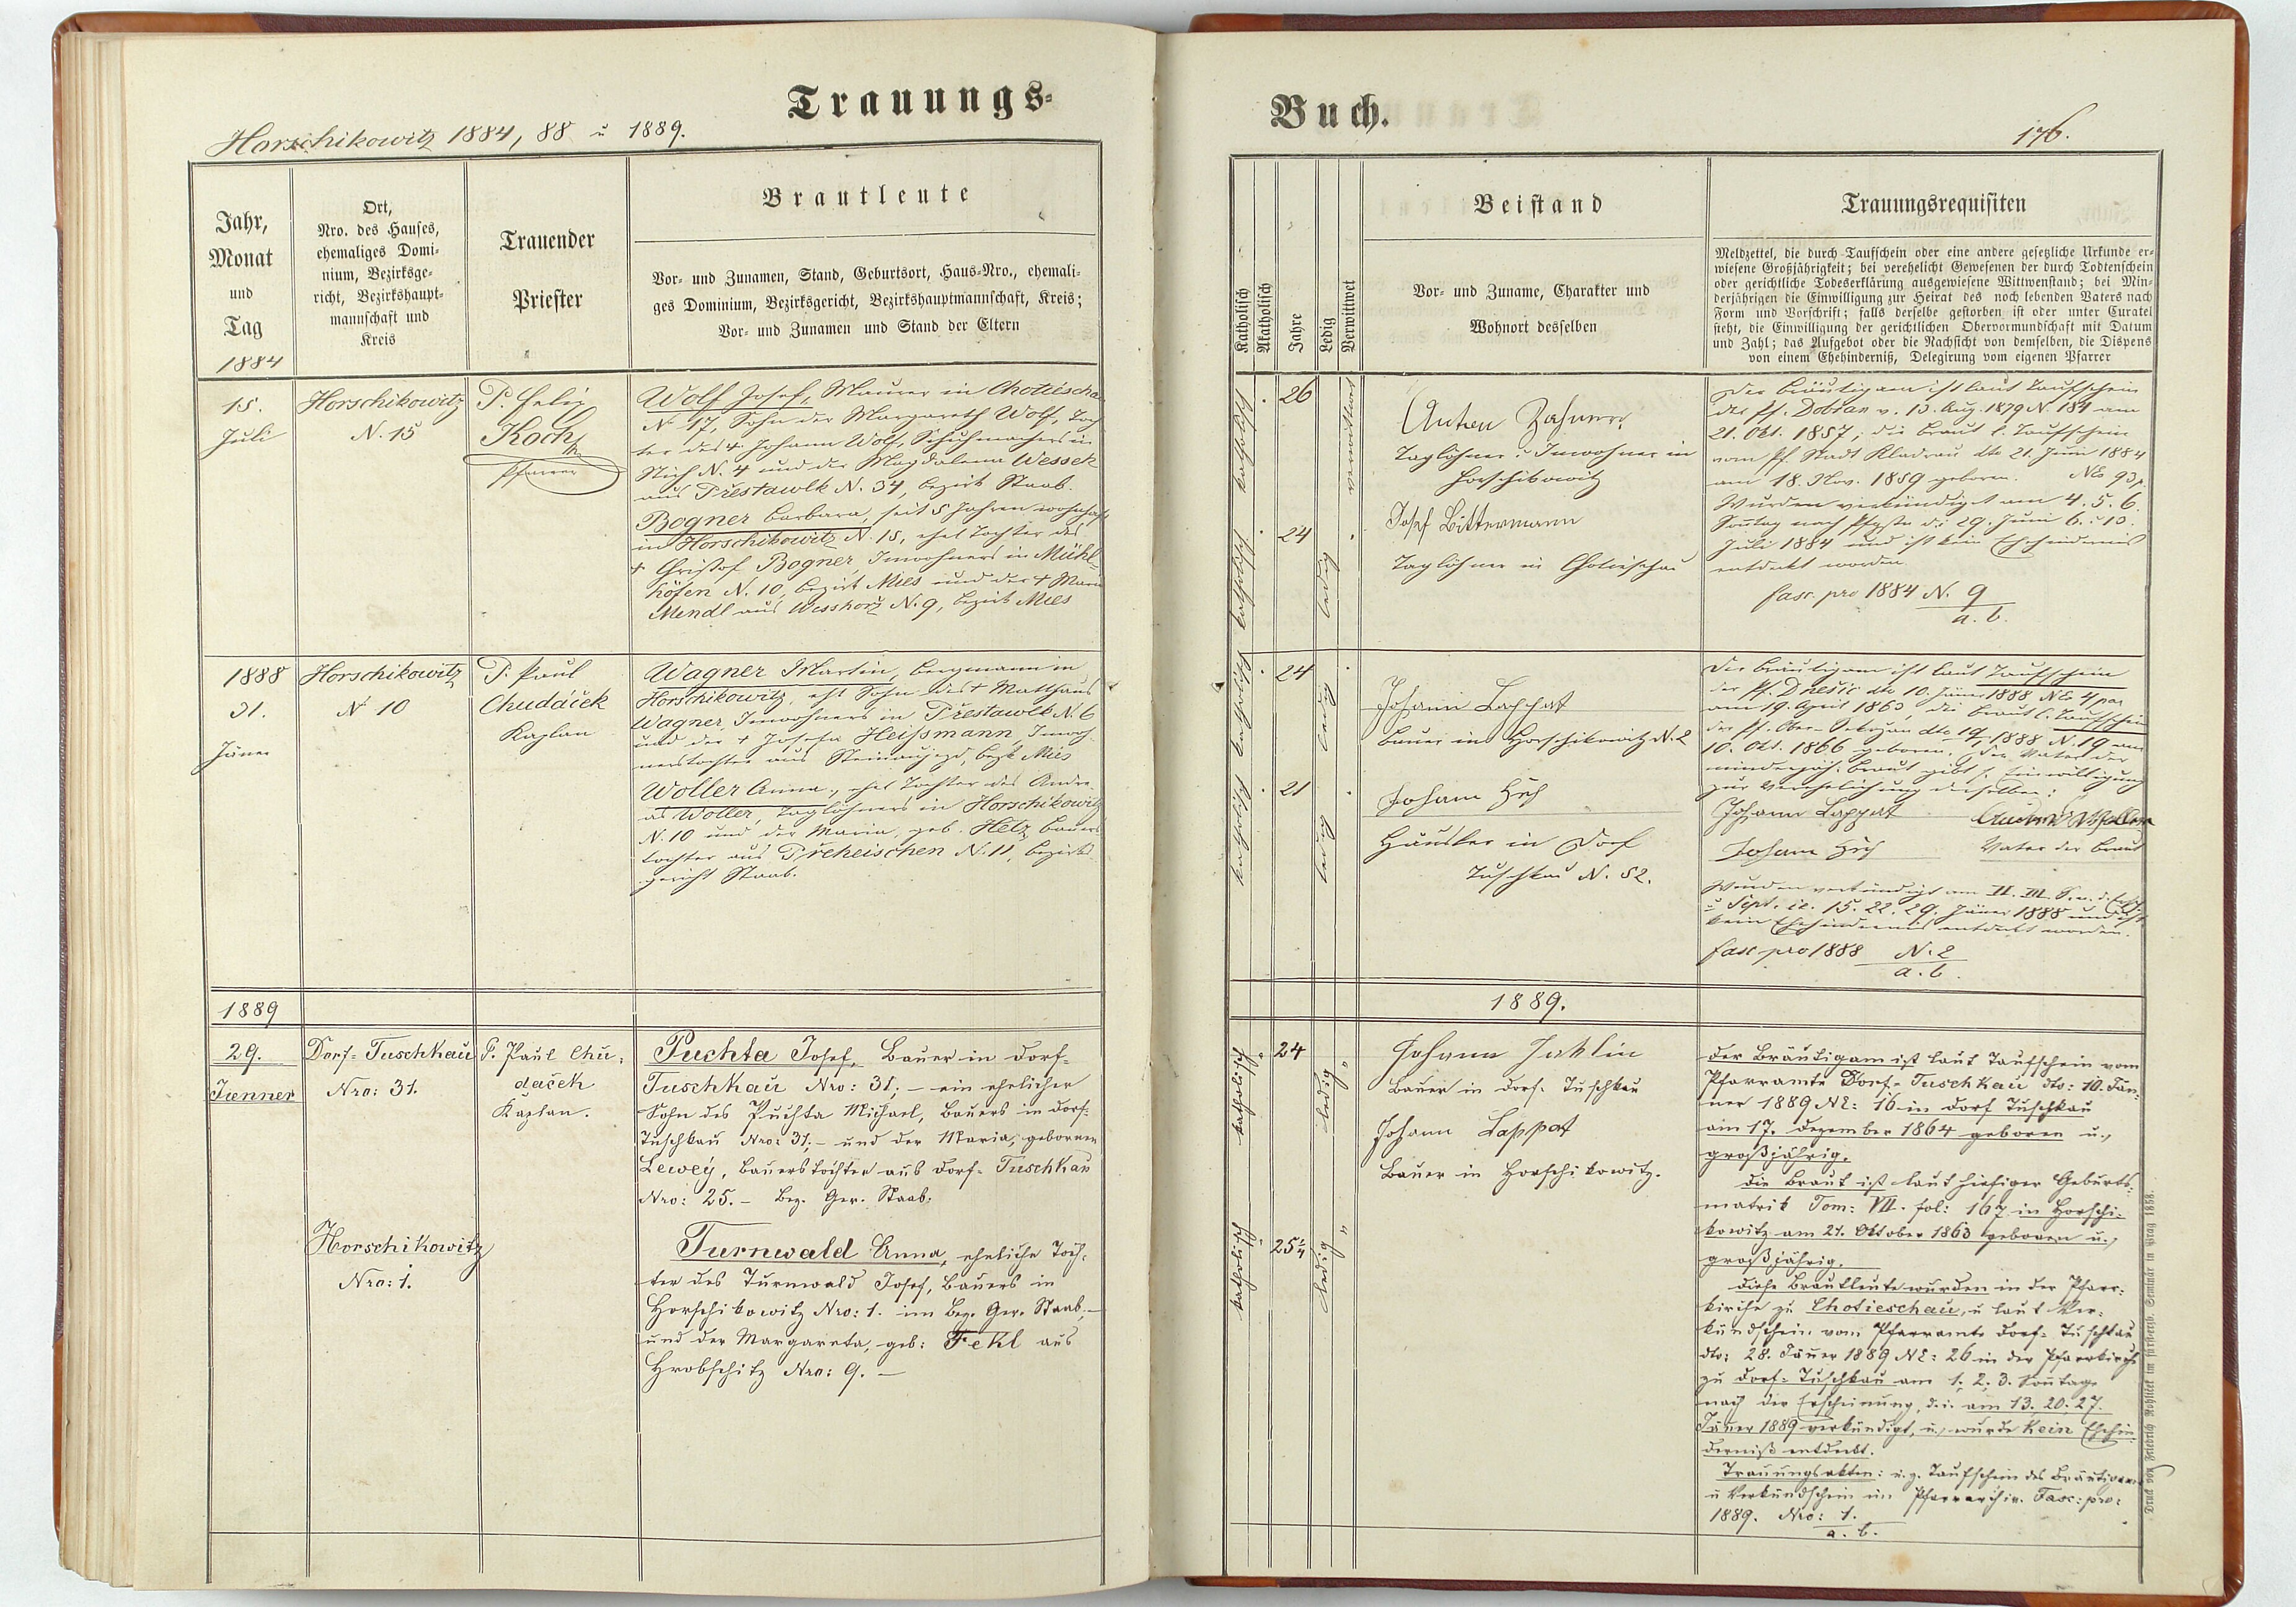 Trauungs-
Horschikowitz 1884, 88 u 1889.
Jahr,
Monat
und
Tag
1884
Ort,
Nro. des Hauses,
ehemaliges Domi-
nium, Bezirksge-
richt, Bezirkshaupt-
mannschaft und
Kreis
Trauender
Priester
Brautleute
Vor- und Zunamen, Stand, Geburtsort, Haus-Nro., ehemali-
ges Dominium, Bezirksgericht, Bezirkshauptmannschaft, Kreis;
Vor- und Zunamen und Stand der Eltern
15.
Juli
Horschikowitz
N. 15
P. Felix
Koch
Pfarrer
Wolf Josef, Maurer in Chotieschau
N. 17, Sohn der Margareth Wolf, Toch
ter des + Johann Wolf, Schuhmachers in
Stich N. 4 und der Magdalena Wessek
aus Přestawlk N. 34, Bezirk Staab.
Bogner Barbara, seit 5 Jahren wohnhaft
in Horschikowitz N. 15, ehel Tochter des
+ Christof Bogner, Inwohners in Mühl-
höfen N. 10, Bezirk Mies und der + Maria
Mendl aus Wesshorz N. 9, Bezirk Mies
1888
31.
Jäner
Horschikowitz
N 10
P. Paul
Chudáček
Kaplan
Wagner Martin, Bergmann in
Horschikowitz, ehl Sohn des + Matthäus
Wagner, Inwohners in Přestawlk N. 6
und der + Josefa Heißmann Inwoh
nerstochter aus Steinaujezd, Bezk Mies
Woller Anna, ehel Tochter des Andre-
as Woller, Taglöhners in Horschikowitz
N. 10 und der Maria, geb. Helz Bauers
tochter aus Přeheischen N. 11, Bezirks
gericht Staab.
1889
29.
Jenner
Dorf-Tuschkau
Nro: 31.
P. Paul Chu-
daček
Kaplan.
Puchta Josef, Bauer in Dorf-
Tuschkau Nro: 31; – ein ehelicher
Sohn des Puchta Michael, Bauers in Dorf-
Tuschkau Nro: 31; – und der Maria, gebornen
Lewey, Bauerstochter aus Dorf-Tuschkau
Nro: 25. – Bez. Ger. Staab.
Horschikowitz
Nro: 1.
Turnwald Anna, eheliche Toch-
ter des Turnwald Josef, Bauers in
Horschikowitz Nro: 1. im Bez. Ger. Staab, –
und der Margareta, geb: Fekl aus
Hrobschitz Nro: 9. –
Buch.
176.
Katholisch
Akatholisch
Jahre
Ledig
Verwitwet
Beistand
Vor- und Zuname, Charakter und
Wohnort desselben
Trauungsrequisiten
Meldzettel, die durch Taufschein oder eine andere gesetzliche Urkunde er-
wiesene Großjährigkeit; bei verehelicht Gewesenen der durch Todtenschein
oder gerichtliche Todeserklärung ausgewiesene Wittwenstand; bei Min-
derjährigen die Einwilligung zur Heirat des noch lebenden Vaters nach
Form und Vorschrift; falls derselbe gestorben ist oder unter Curatel
steht, die Einwilligung der gerichtlichen Obervormundschaft mit Datum
und Zahl; das Aufgebot oder die Nachsicht von demselben, die Dispens
von einem Ehehinderniß, Delegirung vom eigenen Pfarrer
katholisch
26
verwittwet
katholisch
24
ledig
Anton
Taglöhner u Inwohner in
Horschikowitz
Josef Bittermann
Taglöhner in Chotieschau
Der Bräutigam ist laut Taufschein
der Pf. Dobřan v. 13. Aug. 1879 N. 184 am
21. Okt. 1857; die Braut l. Taufschein
vom Pf. Stadt Kladrau dto 21. Juni 1884
am 18. Nov. 1859 geboren. NE 93
Wurden verkündigt am 4. 5. 6.
Sonntag nach Pfgstn d.i 29. Juni 6. u 13.
Juli 1884 und ist kein Ehehinderniß
entdekt worden.
fasc. pro 1884 N. 9
a. b.
katholisch
24
ledig
katholisch
21
ledig
Johann Lappat
Bauer in Horschikowitz N. 2
Johann
Häusler in Dorf
Tuschkau N. 52.
Der Bräutigam ist laut Taufschein
der Pf. Dnešic dto 10. Jäner 1888 NE 4 par
am 19. April 1863, die Braut l. Taufschein
der Pf. Ober- dto 19. 1888 N. 19 am
10. Okt. 1866 geboren. Der Vater der
minderjäh. Braut gibt s. Einwilligung
zur Verehelichung derselben:
Johann Lappat
Andreas Woller
Johann
Vater der Braut
Wurden verkündigt am
u Sept. ie. 15. 22. 29. Jäner 1888 und ist
kein Ehehinderniß entdekt worden.
fasc pro 1888 N. 2
a. b.
1889.
katholisch
24
ledig
"
katholisch
25 1/4
ledig
"
Johann Jaklin
Bauer in Dorf-Tuschkau
Johann Lappat
Bauer in Horschikowitz.
Der Bräutigam ist laut Taufschein vom
Pfarramte Dorf-Tuschkau dto: 10. Jän-
ner 1889 NE: 16 in Dorf Tuschkau
am 17. Dezember 1864 geboren u.,
großjährig.
Die Braut ist laut hiesiger Geburts-
matrik Tom: VII. fol: 167 in Horschi-
kowitz am 21. Oktober 1863 geboren u.,
großjährig.
Diese Brautleute wurden in der Pfarr-
kirche zu Chotieschau, u laut Ver-
kündschein vom Pfarramte Dorf-Tuschkau
dto: 28. Jäner 1889 NE: 26 in der Pfarrkirche
zu Dorf-Tuschkau am 1. 2. 3. Sonntage
nach der Erscheinung, d. i. am 13. 20. 27.
Jäner 1889 verkündigt, u., wurde kein Ehehin-
derniß entdekt.
Trauungsakten: u. z. Taufschein des Bräutigams
u Verkündschein im Pfarrarchiv. Fasc: pro:
1889. Nro: 1.
a. b.
Druck von Friedrich Rohliček im fürsterzb. Seminär in Prag 1858.